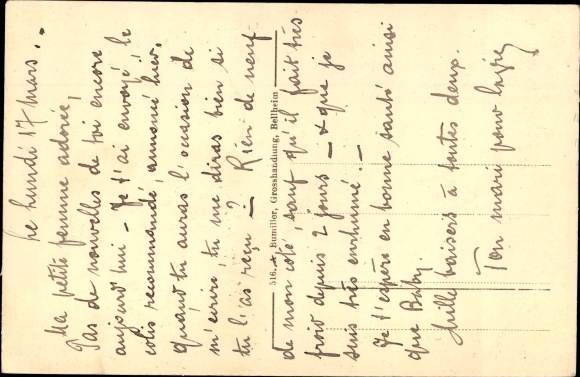 Le Lundi 17 Mars..
Ma petite femme adorée,
Pas de nouvelles de toi encore
aujourd'hui - Je t'ai envoyé le
colis recommandé, annoncé hier.
quand tu auras l'occasion de
m'écrire, tu me diras bien si
tu l'as reçu - ? Rien de neuf
516. Bumiller, Grosshandlung, Bellheim
de mon coté, sauf qu'il fait très
froid depuis 2 jours - & que je
suis très enrhumé. -
Je t'espère en bonne santé ainsi
que Baby.
Mille baisers à toutes deux.
Ton mari pour la vie